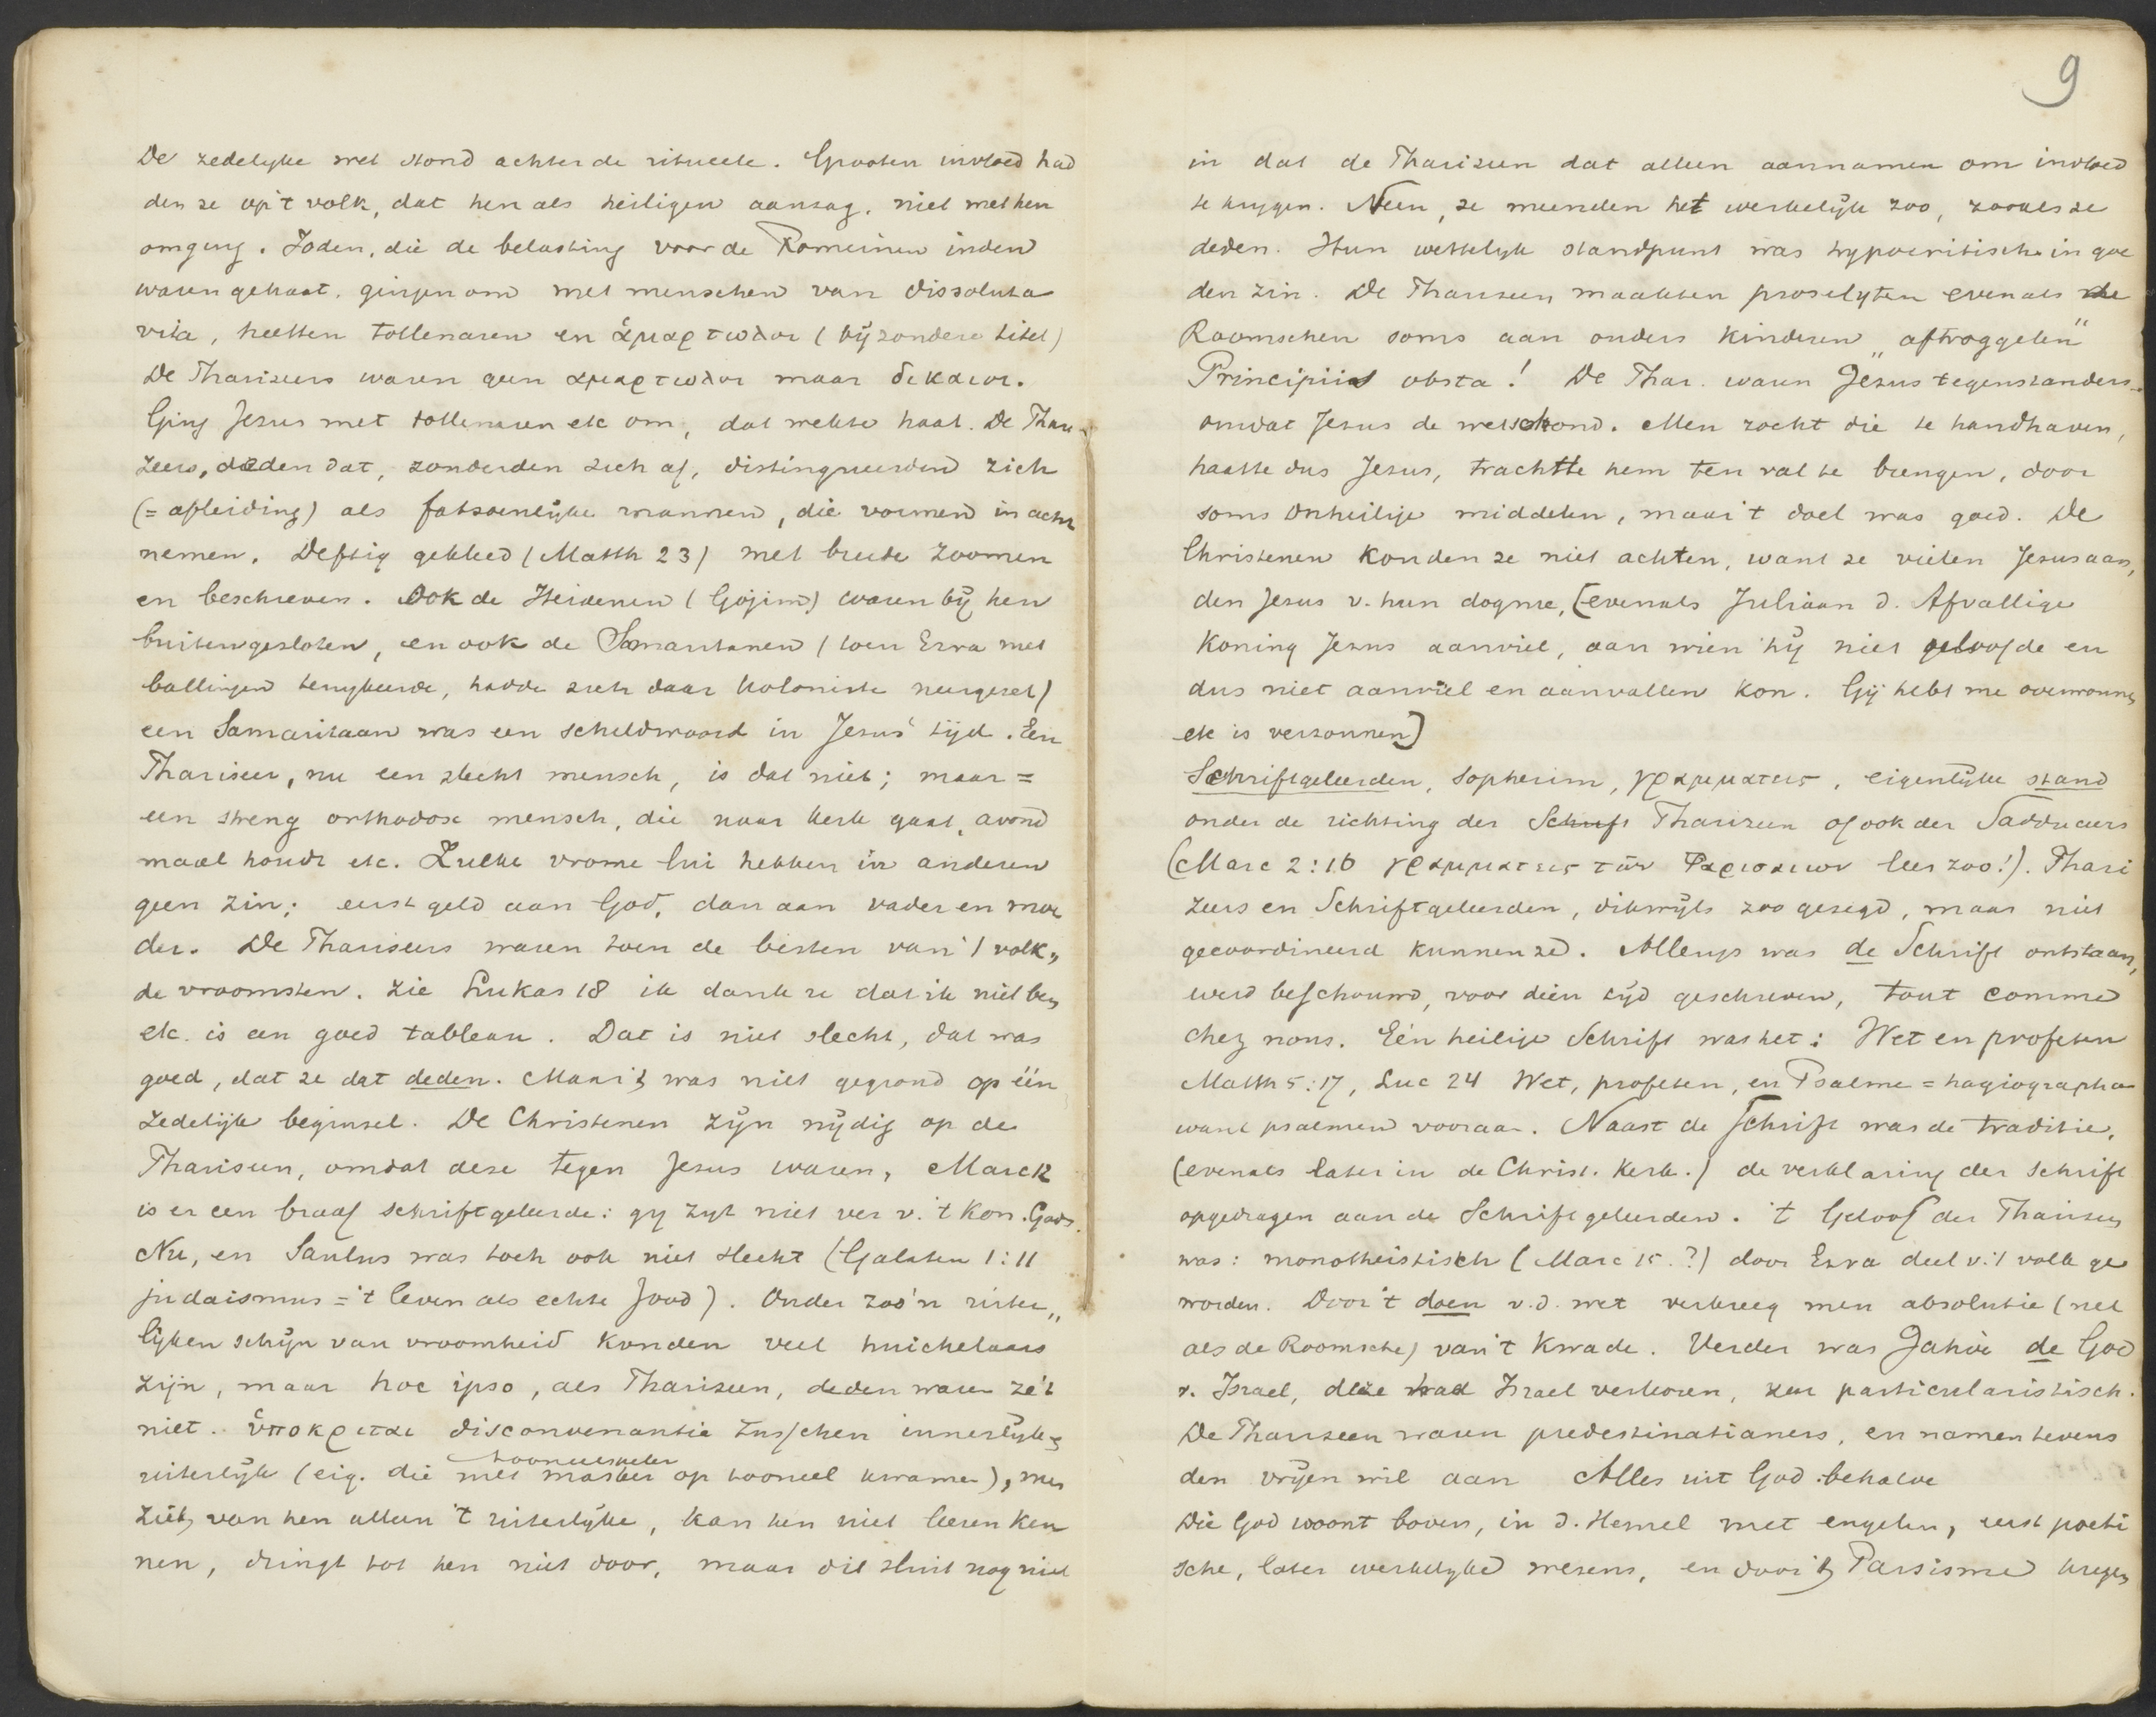 De zedelyke wet stond achter de ritueele. Grooten invloed had
den ze op 't volk, dat hen als heiligen aanzag, niet met hen
omging. Joden, die de belasting voor de Romeinen inden
waren gehaat, gingen om met menschen van dissoluta
vita, heetten tollenaren en ἁμαρτωλοι (bijzondere titel)
De Pharizeers waren geen αμαρτωλοι maar δικαιοι.
Ging Jezus met tollenaren etc om, dat wekte haat. De Phari-
zeers, deden dat, zonderden zich af, distingueerden zich
(= afleiding) als fatsoenlijke mannen, die vormen in acht
nemen. Deftig gekleed (Matth 23) met breede zoomen
en beschreven. Ook de Heidenen (Gojim) waren bij hen
buitengesloten, en ook de Samaritanen (toen Ezra met
ballingen terugkeerde, hadde zich daar koloniste neergezet)
een Samaritaan was een scheldwoord in Jezus' tijd. Een
Phariseer, nu een slecht mensch, is dat niet; maar =
een streng orthodox mensch, die naar kerk gaat, avond
maal houdt etc. Zulke vrome lui hebben in anderen
geen zin; eerst geld aan God, dan aan vader en moe
der. De Phariseers waren toen de besten van 't volk,
de vroomsten. Zie Lukas 18 ik dank u dat ik niet ben
etc. is een goed tableau. Dat is niet slecht, dat was
goed, dat ze dat deden. Maar 't was niet gegrond op één
zedelijk beginsel. De Christenen zijn nijdig op de
Pharizeen, omdat deze tegen Jezus waren, Marc 12
is er een braaf schriftgeleerde: gy zyt niet ver v. 't Kon. Gods.
Nu, en Saulus was toch ook niet slecht (Galaten 1:11
judaismus = 't leven als echte Jood). Onder zoo'n uiter„
lijken schijn van vroomheid konden veel huichelaars
zijn, maar hoc ipso, als Pharizeen, deden waren ze 't
niet. ὑποκριται disconvenantie tusschen innerlijk &
tooneelspeler
uiterlijk (eig. die met masker op tooneel kwamen), men
ziet, van hen alleen 't uiterlijke, kan hen niet leeren ken
nen, dringt tot hen niet door, maar dit sluit nog niet

9
in dat de Pharizeen dat alleen aannamen om invloed
te krygen. Neen, ze meenden het werkelijk zoo, zooals ze
deden. Hun wettelyk standpunt was hypocritisch in goe
den zin. De Pharizeen maakten proselyten evenals de
Roomschen soms aan ouders kinderen „aftroggelen"
Principiis obsta! De Phar. waren Jezus tegenstanders
omdat Jezus de wet schond. Men zocht die te handhaven,
haatte dus Jezus, trachtte hem ten val te brengen, door
soms onheilige middelen, maar 't doel was goed. De
Christenen konden ze niet achten, want ze vielen Jezus aan,
den Jezus v. hun dogme, (evenals Juliaan d. Afvallige
Koning Jezus aanviel, aan wien hij niet geloofde en
dus niet aanviel en aanvallen kon. Gij hebt me overwonnen
etc is verzonnen)
Schriftgeleerden, Sopherim, γραμματεις, eigenlijke stand
onder de richting der Schrift Pharizeen of ook der Sadduceers
(Marc 2:16 γραμματεις των Φαρισαιων lees zoo!). Phari
zeers en Schriftgeleerden, dikwijls zoo gezegd, maar niet
gecoordineerd kunnen ze. Allengs was de Schrift ontstaan,
werd beschouwd, voor dien tijd geschreven, tout comme
chez nous. Eén heilige Schrift was het: Wet en profeten
Matth 5:17, Luc 24 Wet, profeten, en Psalme = hagiographa
want psalmen vooraan. Naast de Schrift was de traditie,
(evenals later in de Christ. Kerk.) de verklaring der schrift
opgedragen aan de Schriftgeleerden. 't Geloof der Pharizeen
was: monotheistisch (Marc 15.?) door Ezra deel v. 't volk ge
worden. Door 't doen v.d. wet verkreeg men absolutie (net
als de Roomsche) van 't kwade. Verder was Jahve de God
v. Israel, deze had Israel verkoren, zeer particularistisch.
De Pharizeen waren predestinatianers, en namen tevens
den vrijen wil aan Alles uit God behalve
Die God woont boven, in d. Hemel met engelen, eerst poeti
sche, later werkelyke wezens, en door 't Parsisme kregen